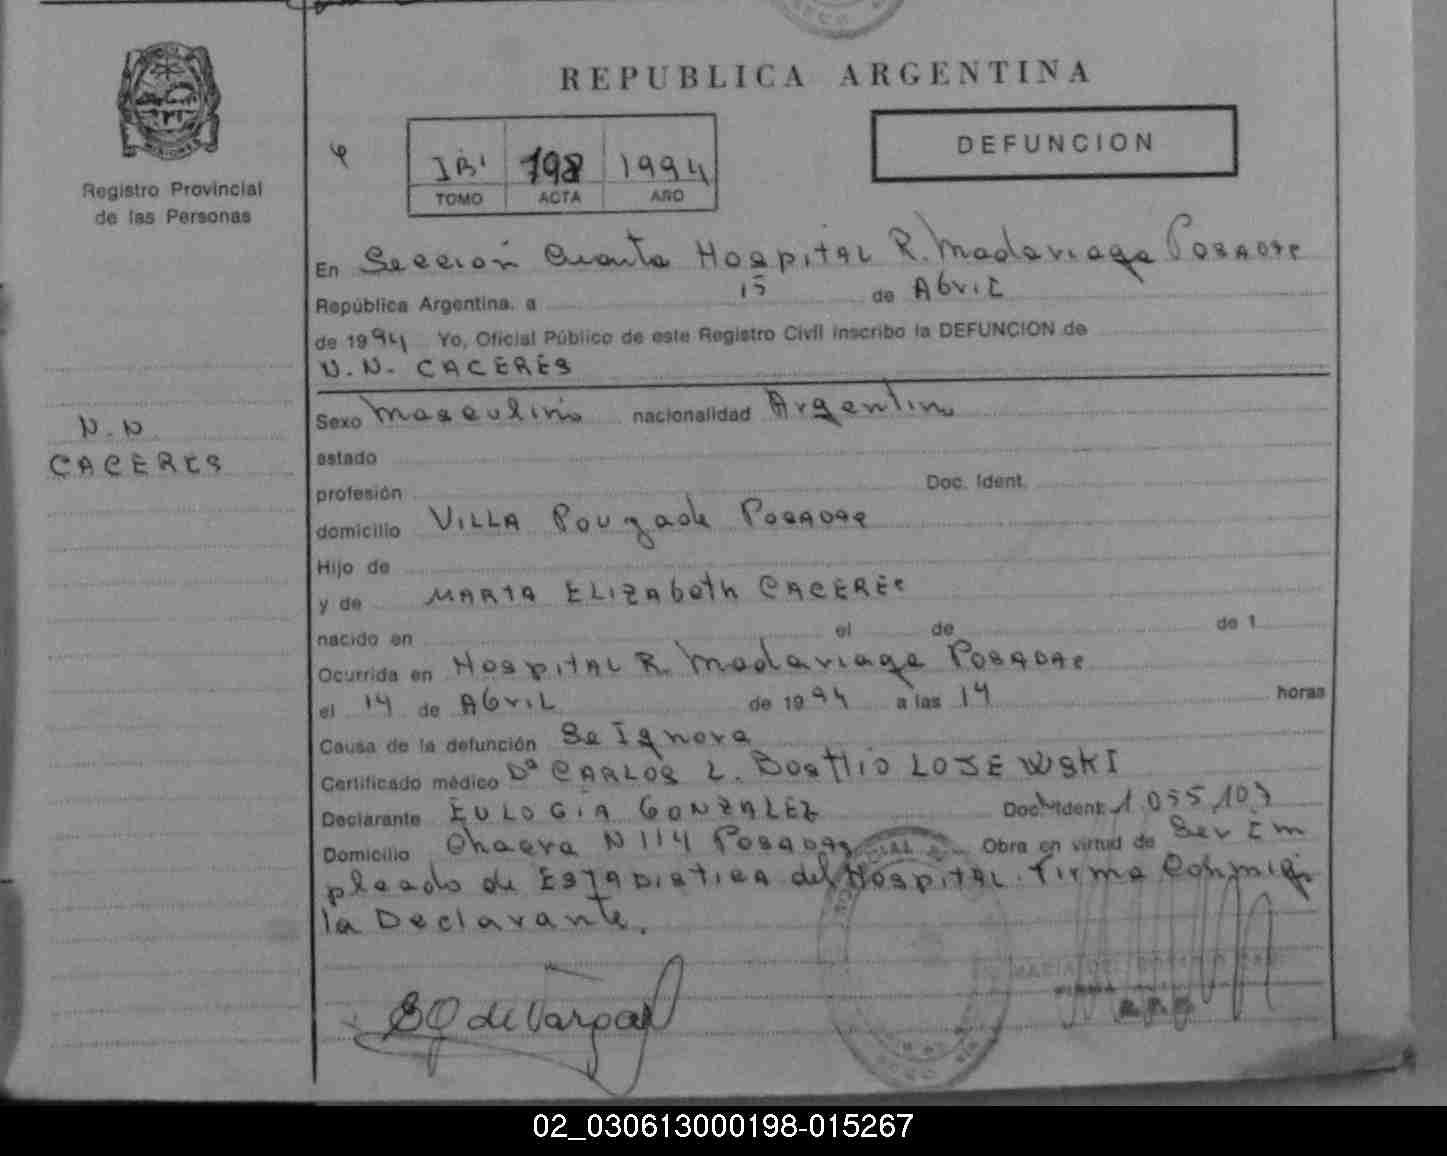 REPUBLICA ARGENTINA
DEFUNCION
Registro Provincial
de las Personas
198 1994
TOMO ACTA AÑO
En Sección Cuarta Hospital R. Madariaga Posadas
República Argentina, a 15 de Abril
de 1994 Yo, Oficial Público de este Registro Civil inscribo la DEFUNCION de
N.N. CACERES
N.N.
CACERES
Sexo Masculino nacionalidad Argentino
estado
profesión Doc. Ident.
domicilio VILLA Pouyade Posadas
Hijo de
y de MARTA ELIZAbeth CACERES
nacido en el de de 1
Ocurrida en Hospital R. Madariaga Posadas
el 14 de Abril de 1994 a las 14 horas
Causa de la defunción Se Ignora
Certificado médico CARLOS L. LOSEWSKI
Declarante EULOGIA GONZALEZ Doc. Ident.
Domicilio N 114 Posadas Obra en virtud de Ser Em
pleado de Estadistica del Hospital. Firma Conmigo
la Declarante.
de Vargas
02_030613000198-015267